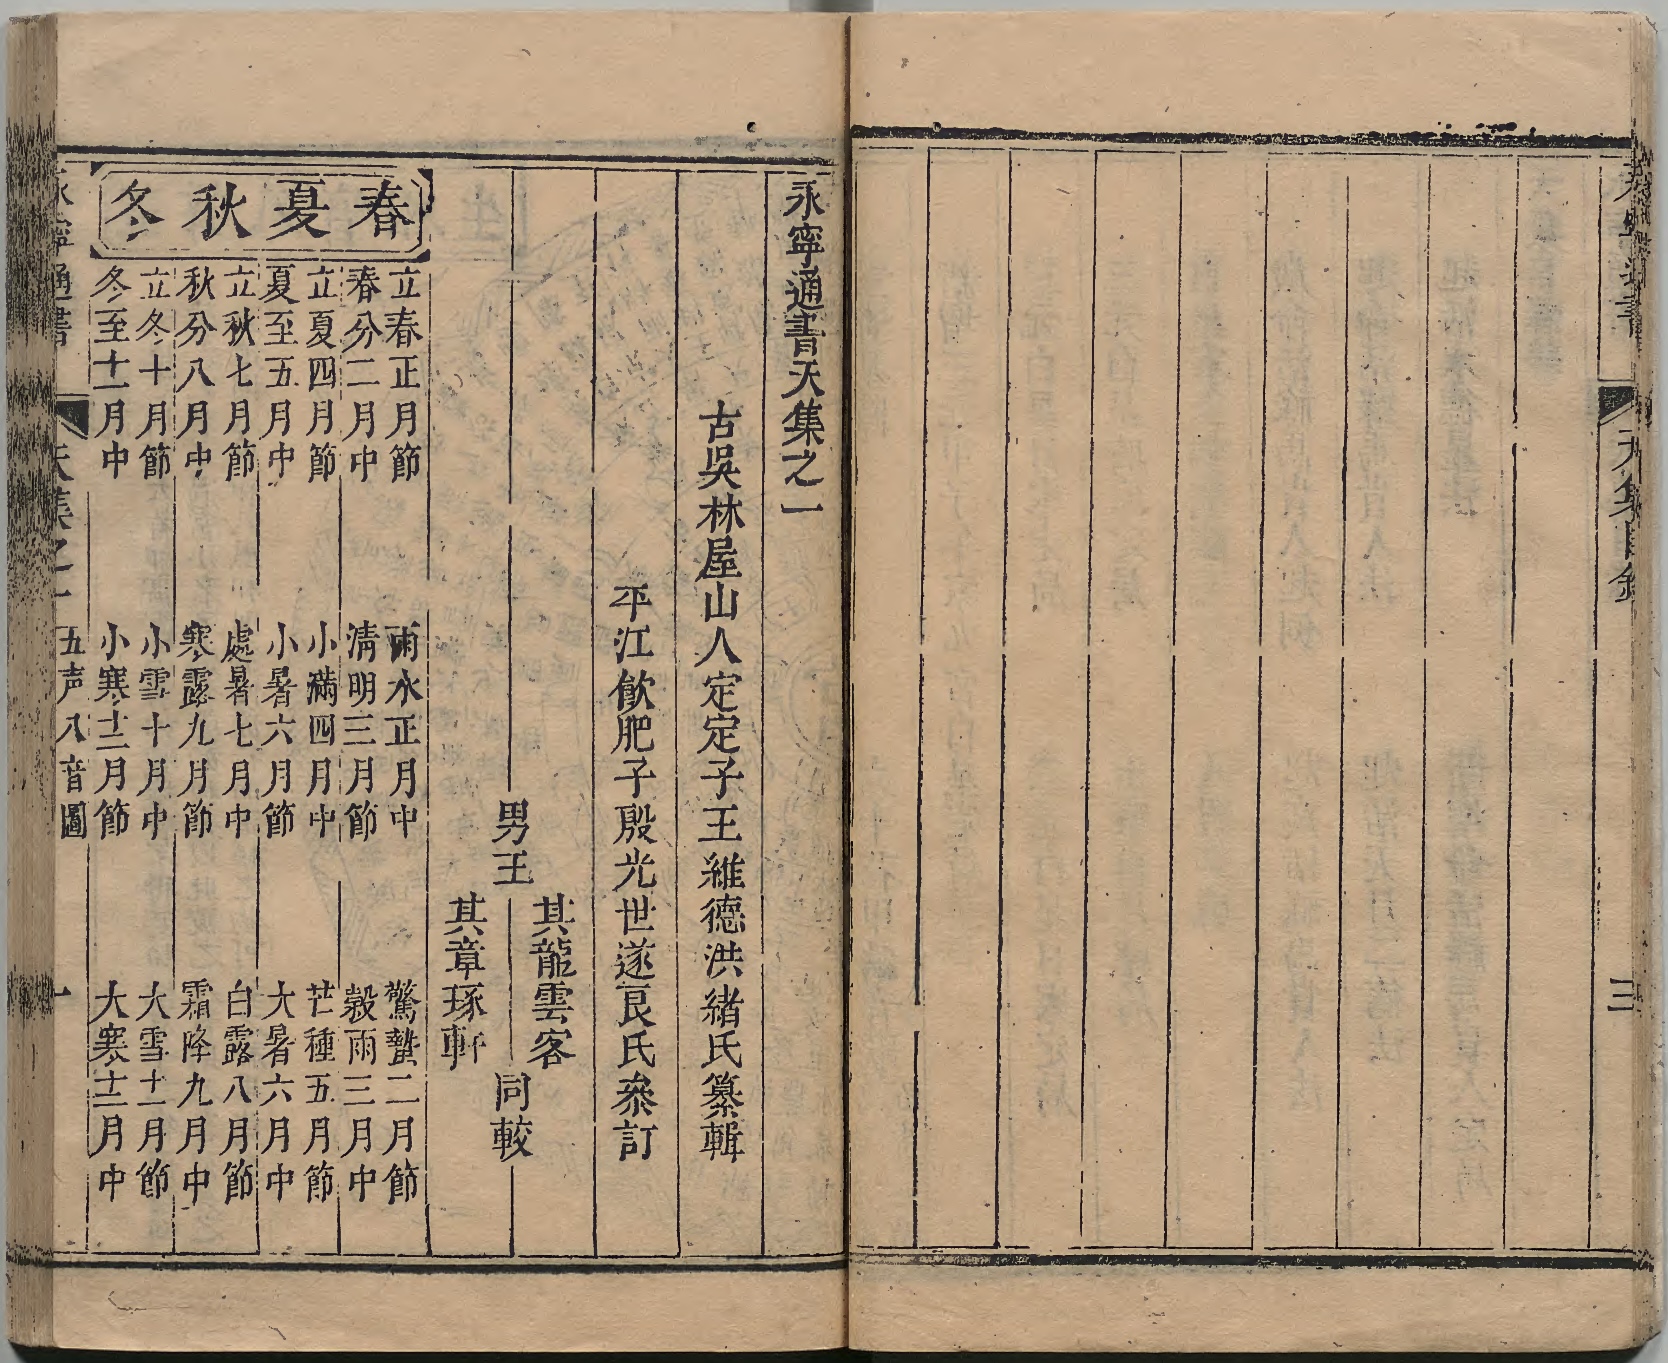 天集目錄
三
永寧通書天集之一
古吳林屋山人定定子王維德洪緒氏纂輯
平江歛肥子殷光世遂良氏叅訂
男王
其龍雲客
其章琢軒
同較
春夏秋冬
立春正月節 雨水正月中 驚蟄二月節
春分二月中 清明三月節 穀雨三月中
立夏四月節 小滿四月中 芒種五月節
夏至五月中 小暑六月節 大暑六月中
立秋七月節 處暑七月中 白露八月節
秋分八月中 寒露九月節 霜降九月中
立冬十月節 小雪十月中 大雪十一月節
冬至十一月中 小寒十二月節 大寒十二月中
永寧通書 天集之一 五声八音圖 一